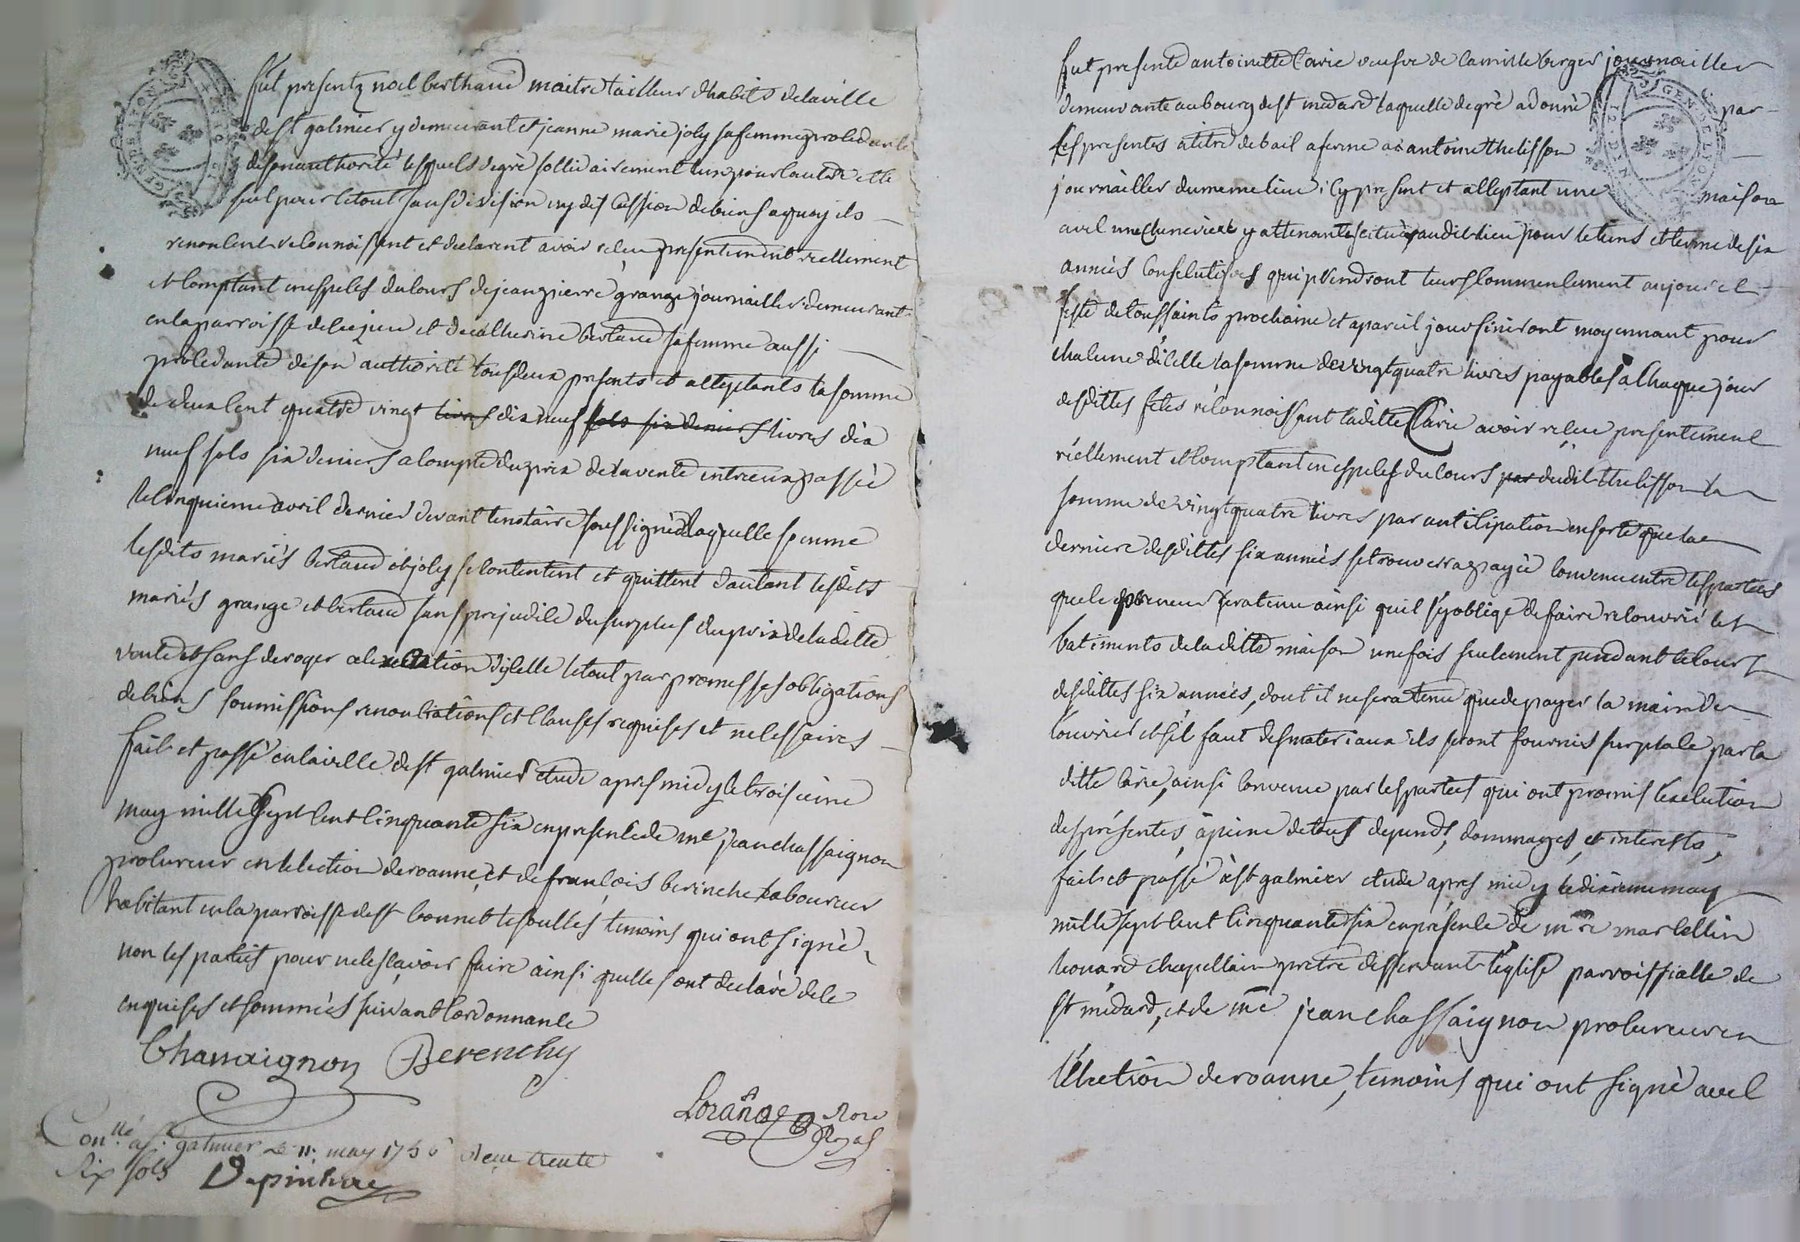 fut presentz noel berthaud maitre tailleur d'habits de la ville
de st galmier y demeurant et jeanne marie joly sa femme procedante
de son authorité lesquels de gré sollidairement l'un pour l'autre et le
seul pour le tout sans division ny discussion de biens a quoy ils
renoncent reconnoissent et declarent avoir receu presentement reellement
et comptant en especes du cours de jean pierre grange journaillier demeurant
en la parroisse de et de catherine bertaud sa femme aussi
procedante de son authorité tous deux presents et acceptants la somme
de deux cent quatre vingt livres dix neuf sols six deniers livres dix
neuf sols six deniers a compte du prix de la vente entre eux passée
le cinquieme avril dernier devant le notaire soussigné de laquelle somme
lesdits mariés bertaud et joly se contentent et quittent d'autant lesdits
mariés grange et bertaud sans prejudice du surplus du prix de la ditte
vente et sans deroger a l'exécution d'icelle le tout par promesses obligations
de biens soumissions renonciations et clauses requises et necessaires
fait et passé en la ville de st galmier etude apres midy le troisieme
may mille sept cent cinquante six en presence de me jean chassaignon
procureur en l'election de roanne, et de françois berinche laboureur
habitant en la parroisse de st bonnet les oulles, temoins qui ont signé
non les parties pour ne le sçavoir faire ainsi quelles ont declaré de ce
enquises et sommées suivant l'ordonnance
Chassaignon Berenchy
Lorañge Nore
Royal
Conllé a st galmier le 11 may 1756 receu trente
six sols Depinhac
fut presente antoinette Carie veufve de camille berger journaillier
demeurante au bourg de st medard laquelle de gré a donné par
ces presentes a titre de bail a ferme a antoine thelisson
journaillier du meme lieu icy present et acceptant une maison
avec une cheneviere y attenante scituée audit lieu pour le tems et terme de six
années consecutives qui prendront leurs commencement au jour et
feste de toussaints prochaine et a pareil jour finiront moyennant pour
chacune d'icelle la somme de vingt quatre livres payables a chaque jour
desdittes fetes reconnoissant laditte Carie avoir receu presentement
réellement et comptant en especes du cours par dudit thelisson la
somme de vingt quatre livres par anticipation en sorte que la
derniere desdittes six années se trouverra payée convenu entre les parties
que le preneur sera tenu ainsi quil s'y oblige de faire recouvrir les
batiments de la ditte maison une fois seulement pendant le cours
desdittes six années, dont il ne sera tenu que de payer la main de
l'ouvrier et s'il faut des materiaux ils seront fournis sur place par la
ditte Carie, ainsi convenu par les parties qui ont promis l'execution
des présentes, à peine de tous depends, dommages, et interests,
fait et passé à st galmier etude apres midy le dixieme may
mille sept cent cinquante six en presence de mre marcellin
houard chapellain pretre desservant l'église parroissialle de
st médard, et de me jean chassaignon procureur en
l'élection de roanne, temoins qui ont signé avec